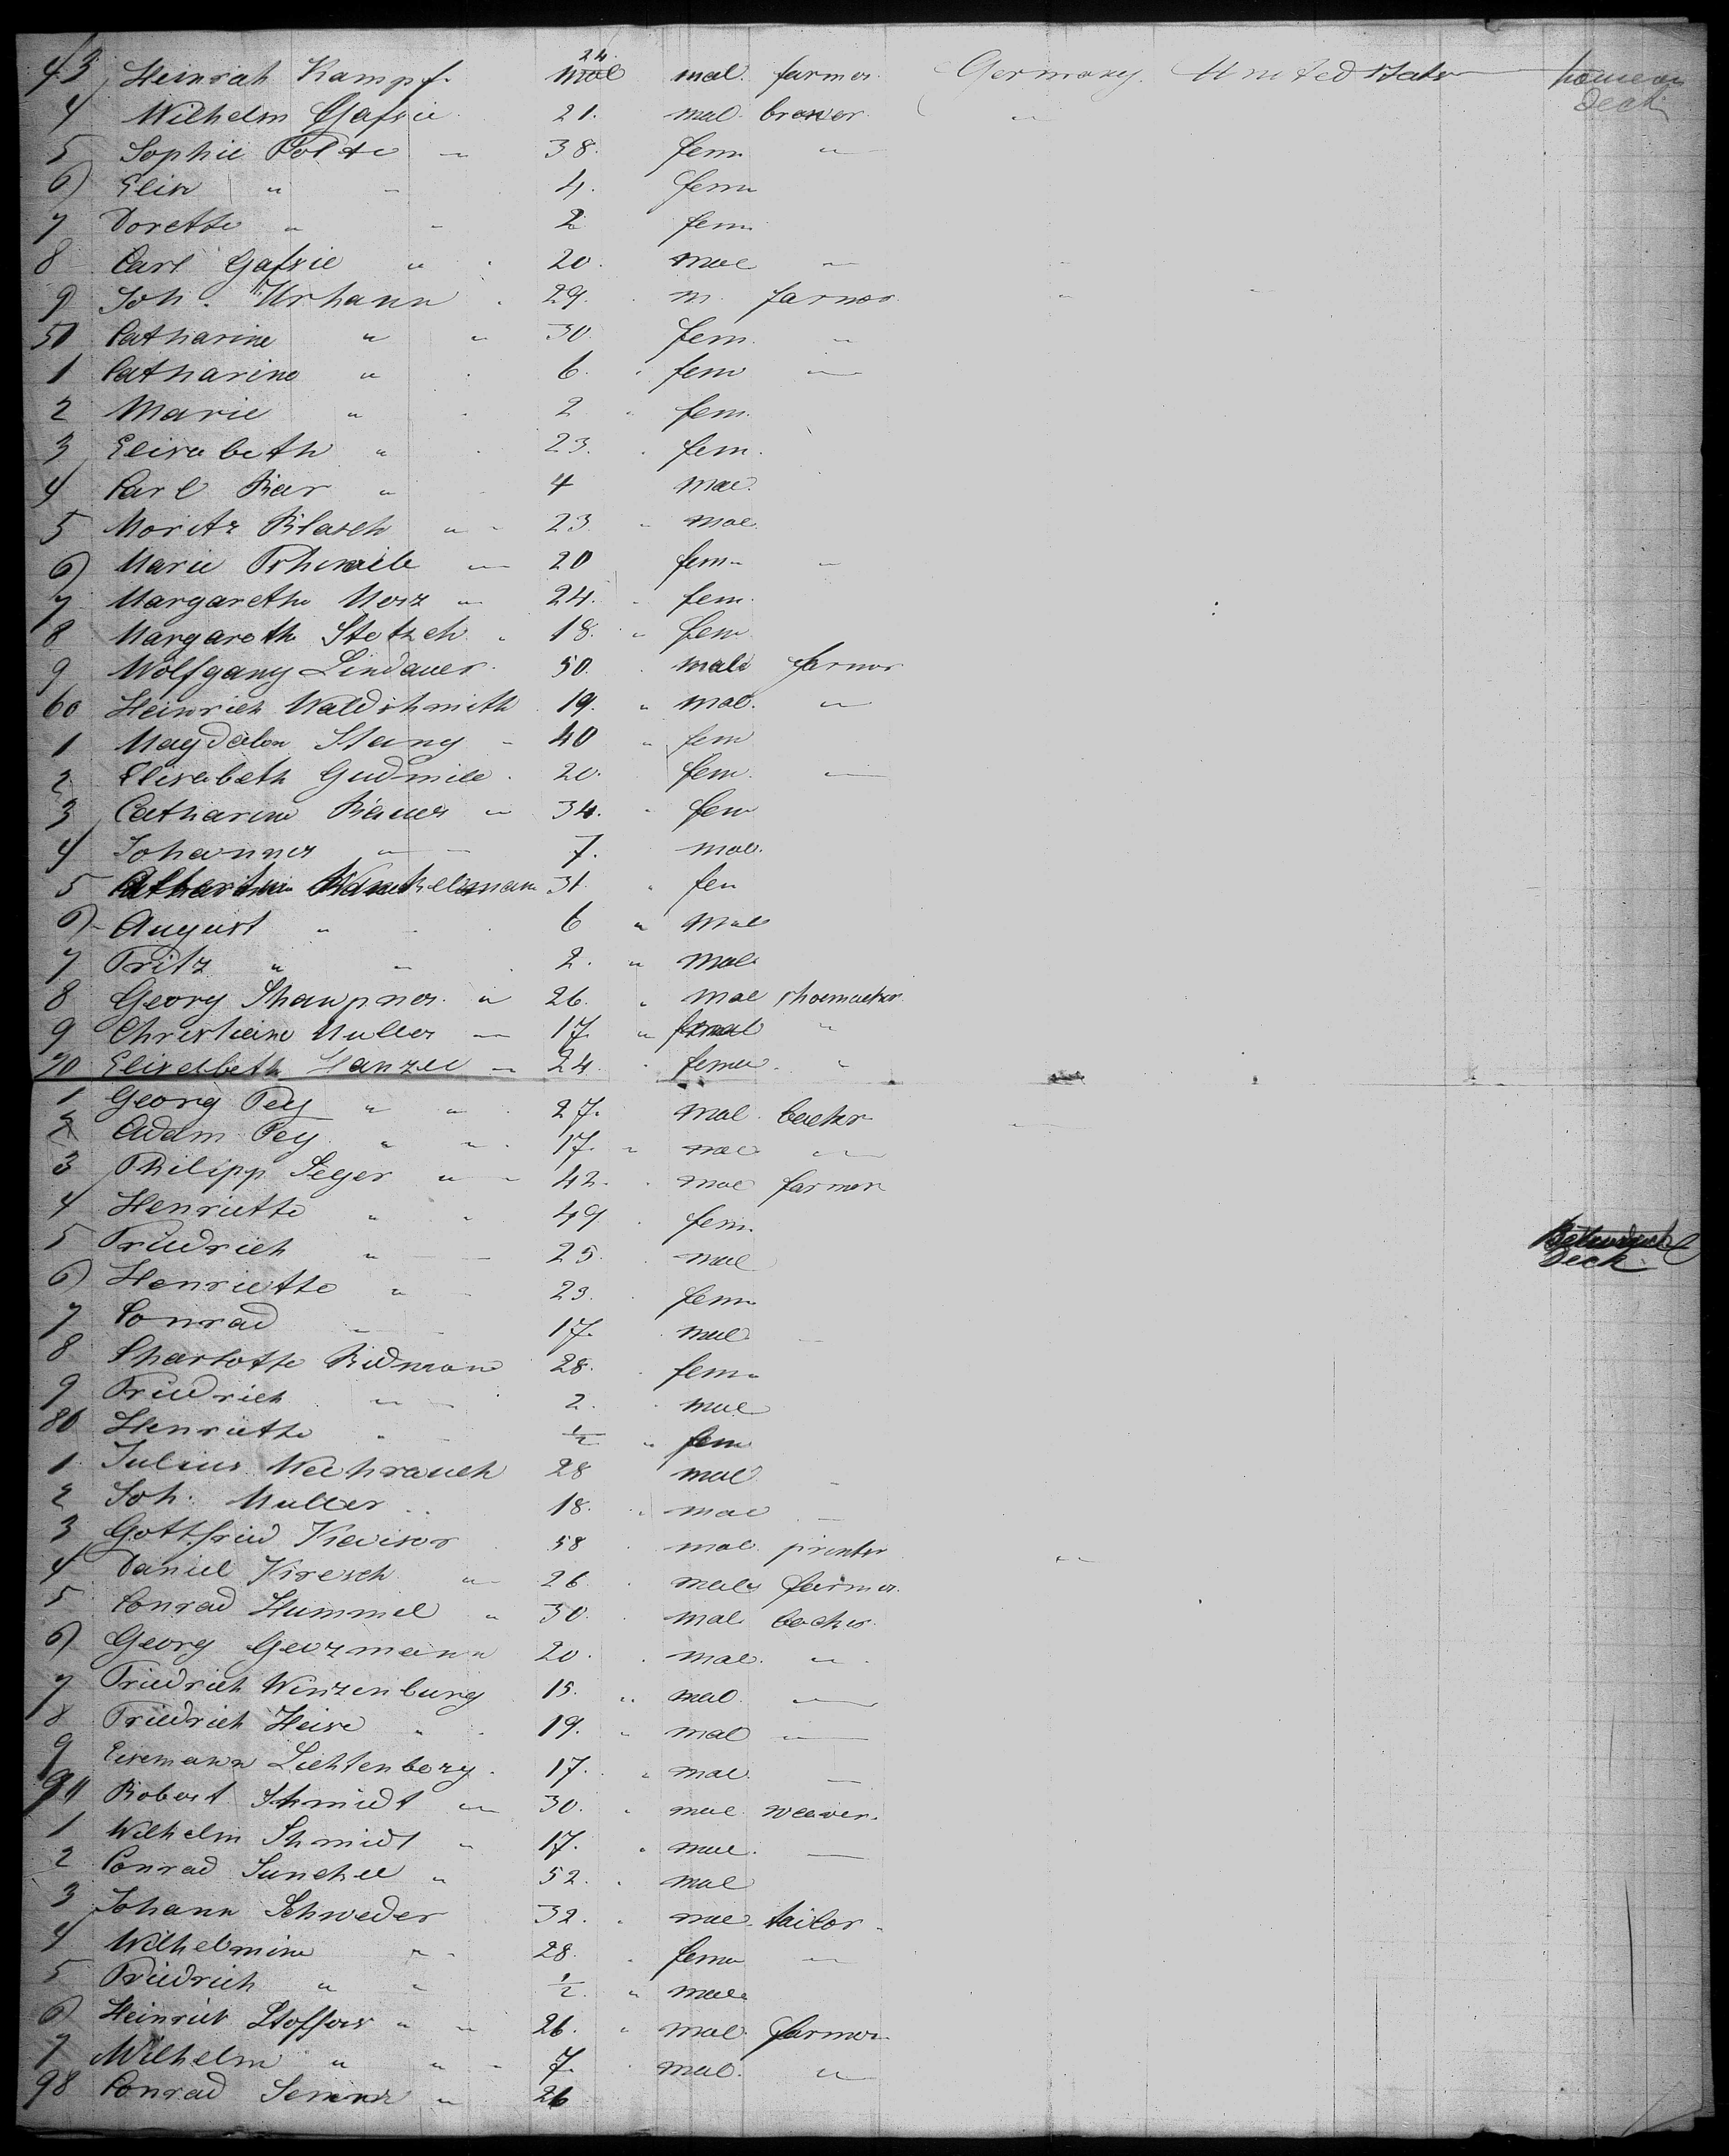 43 Heinrich Kampf. 24. mal. farmer. Germany. United States
Deck
4 Wilhelm Gafsie 21. mal. brewer. "
5 Sophie Polte " 38. fem. "
6 Elise " " 4. fem
7 Dorette " " 2 fem
8 Carl Gafsie " 20. male "
9 Joh. Urhann 29. m. farmer
50 Catharine " " 30. fem. "
1 Catharine " 6. fem "
2 Marie " 2 " fem.
3 Elisabeth " 23. fem.
4 Carl Bar " 4 mal.
5 Moritz Blasch " " 23 " mal.
6 Marie " 20 fem "
7 Margarethe Merz " 24. " fem.
8 Margareth Stetzeh " 18. " fem
9 Wolfgang Lindauer 50. male farmer
60 Heinrich Waldshmith 19. " mal. "
1 Magdalen Stang " 40 " fem
2 Elisabeth Gudmile 20. fem. "
3 Catharine Bauer " 34. " fem
4 Johannes " " 7. mal.
5 Catharine 31. " fem
6 August " 6 " male
7 Fritz " " 2. " male
8 Georg Shawpner " 26. " mal shoemaker
9 Christiane Muller " 17. " "
70 Eliselbeth Hanzel " 24 " femal. "
1 Georg Pey " " 27. mal. backer "
2 Adam Pey " " 17. " mal "
3 Philipp Seger " " 42. mal farmer
4 Henriette " " 49 fem.
5 Friedrich " 25. male
Deck.
6 Henriette " 23. fem
7 Conrad " 17. male
8 Sharlotte Ridmann 28. fem
9 Friedrich " 2. male
80 Henriette " 1/2 " fem
1 Julius Weihrauch 28 male
2 Joh. Muller 18. " male
3 Gottfried 58 mal. printer "
4 Daniel Kirsch " 26. male farmer.
5 Conrad Hummel " 30. male backer.
6 Georg Gerzmann 20. mal. "
7 Friedrich Winzenburg 15. " mal. "
8 Friedrich Heise " 19. " mal "
9 Eisemann Lichtenberg. 17. " mal.
90 Robert Schmidt " 30. " male weaver.
1 Wilhelm Shmidt " 17. " male.
2 Conrad Sunckel " 52. " male
3 Johann Schweder 32. " male tailor.
4 Wilhelmine " 28. femal "
5 Friedrich " " 1/2 " male
6 Heinrich Stoffers " " 26. " male farmer
7 Wilhelm " " 7. male. "
98 Conrad " 26